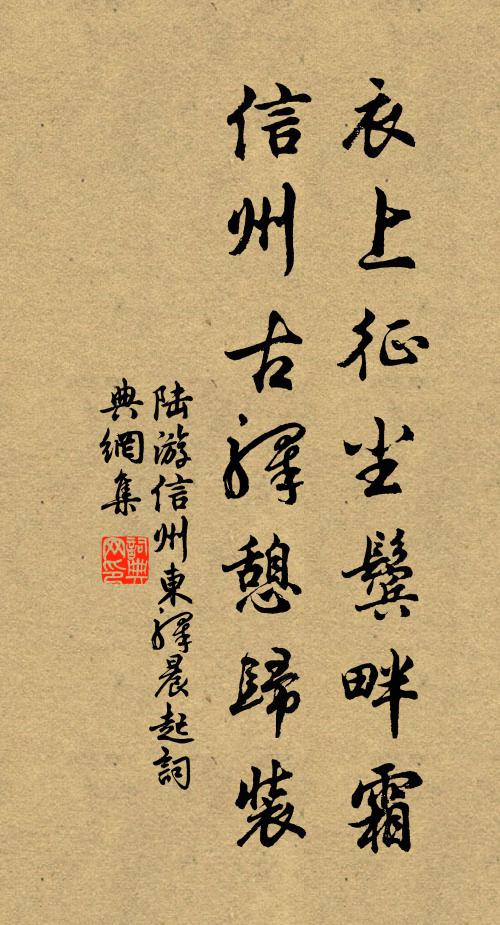 衣上征尘鬓畔霜
信州古驿憩歸裝
陆游信州東驿晨起詞
典網集
詞典网印